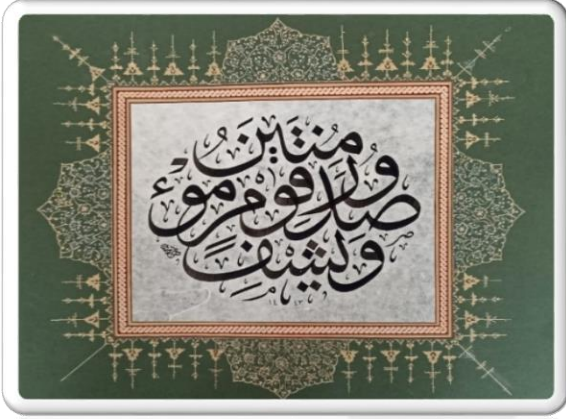 وَيَشْفِ صُدُورَ قَوْمٍ مُؤْمِنِينَ